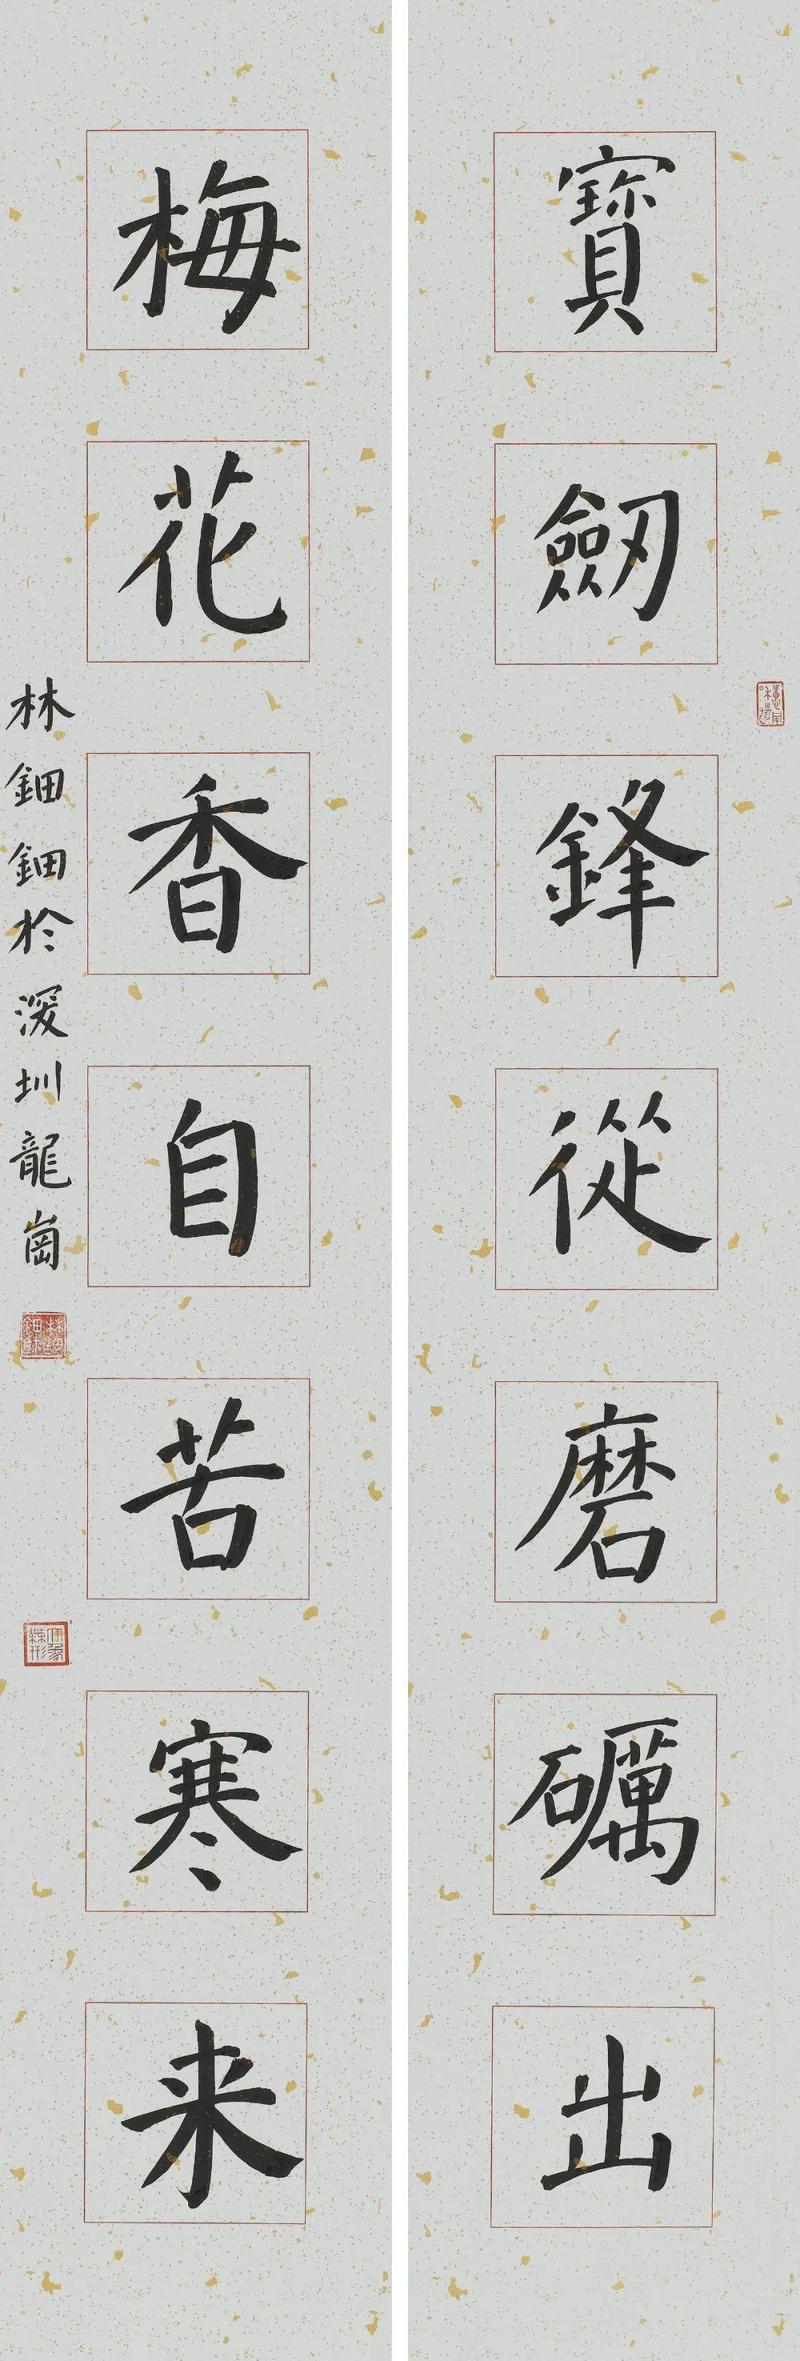 寶劒鋒從磨礪出
梅花香自苦寒来
林鈿鈿於深圳龍崗